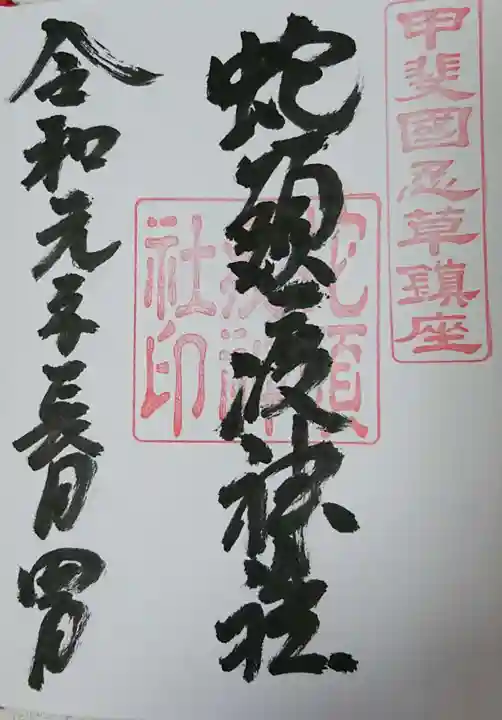 甲斐國忍草鎮座
蛇頭疫神社
蛇頭疫神社印
令和元年長月四日